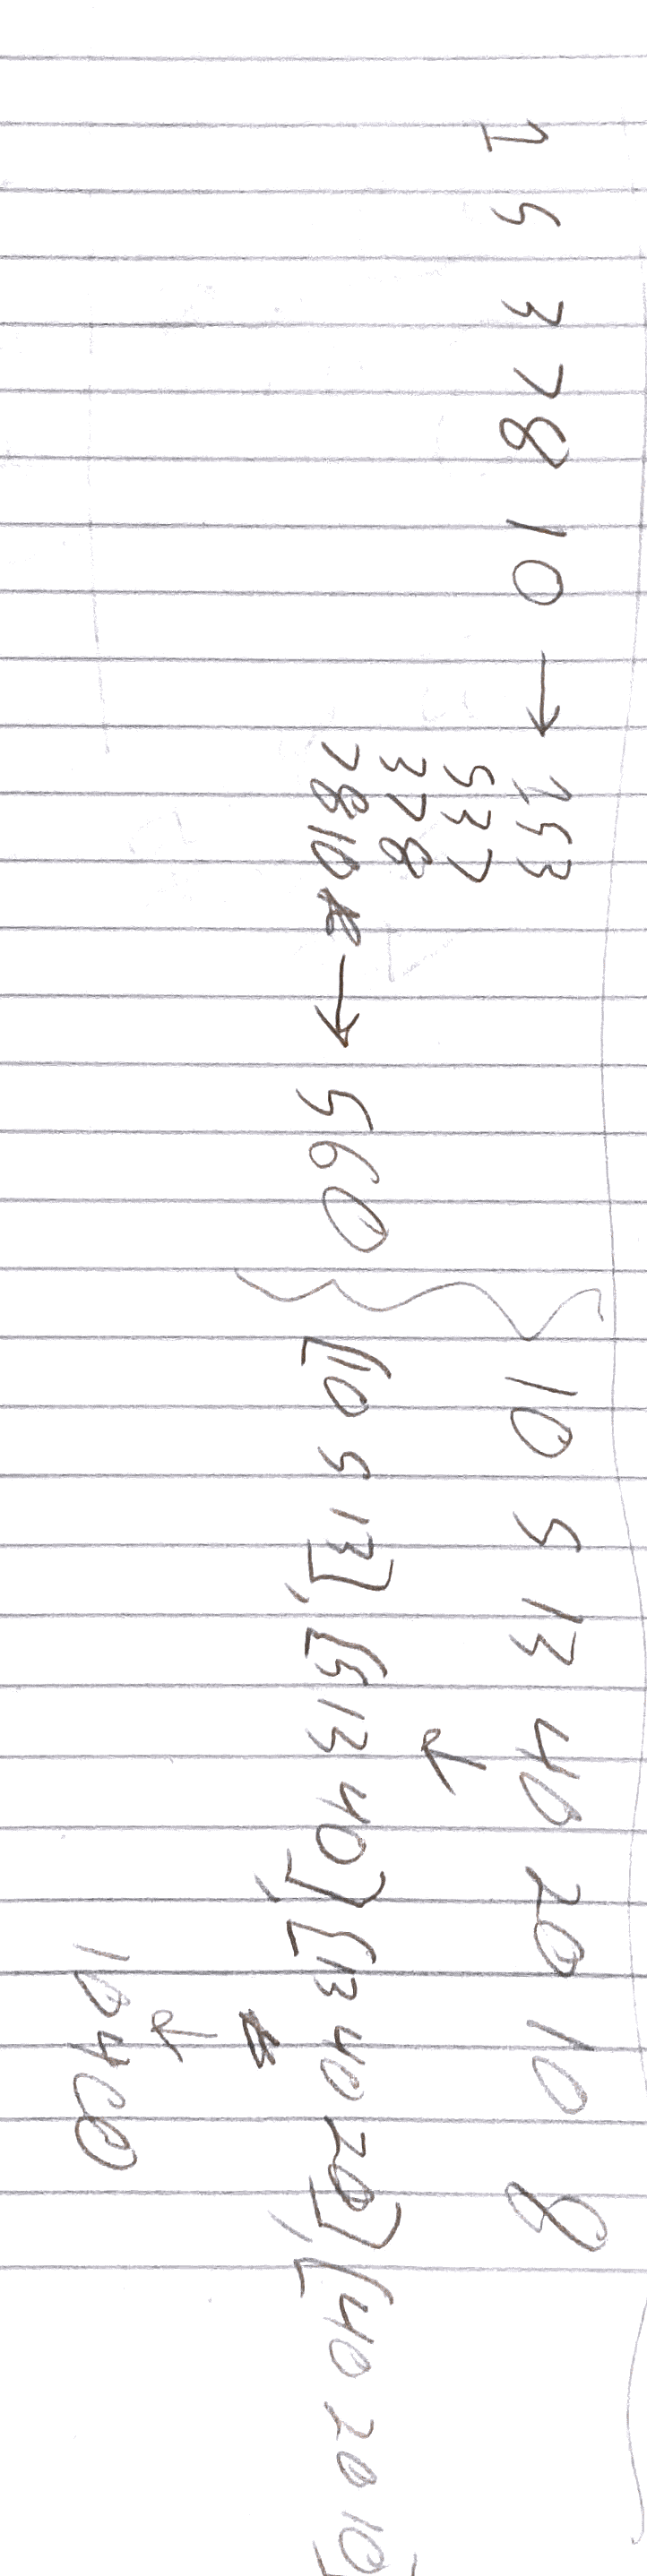 1 5 3 7 8 10 → 1 5 3
5 3 7
3 7 8
7 8 10 → 560
10 5 13 40 20 10 8
[10 5 13], [5 13 40], [13 40 20], [40 20 10]
10400